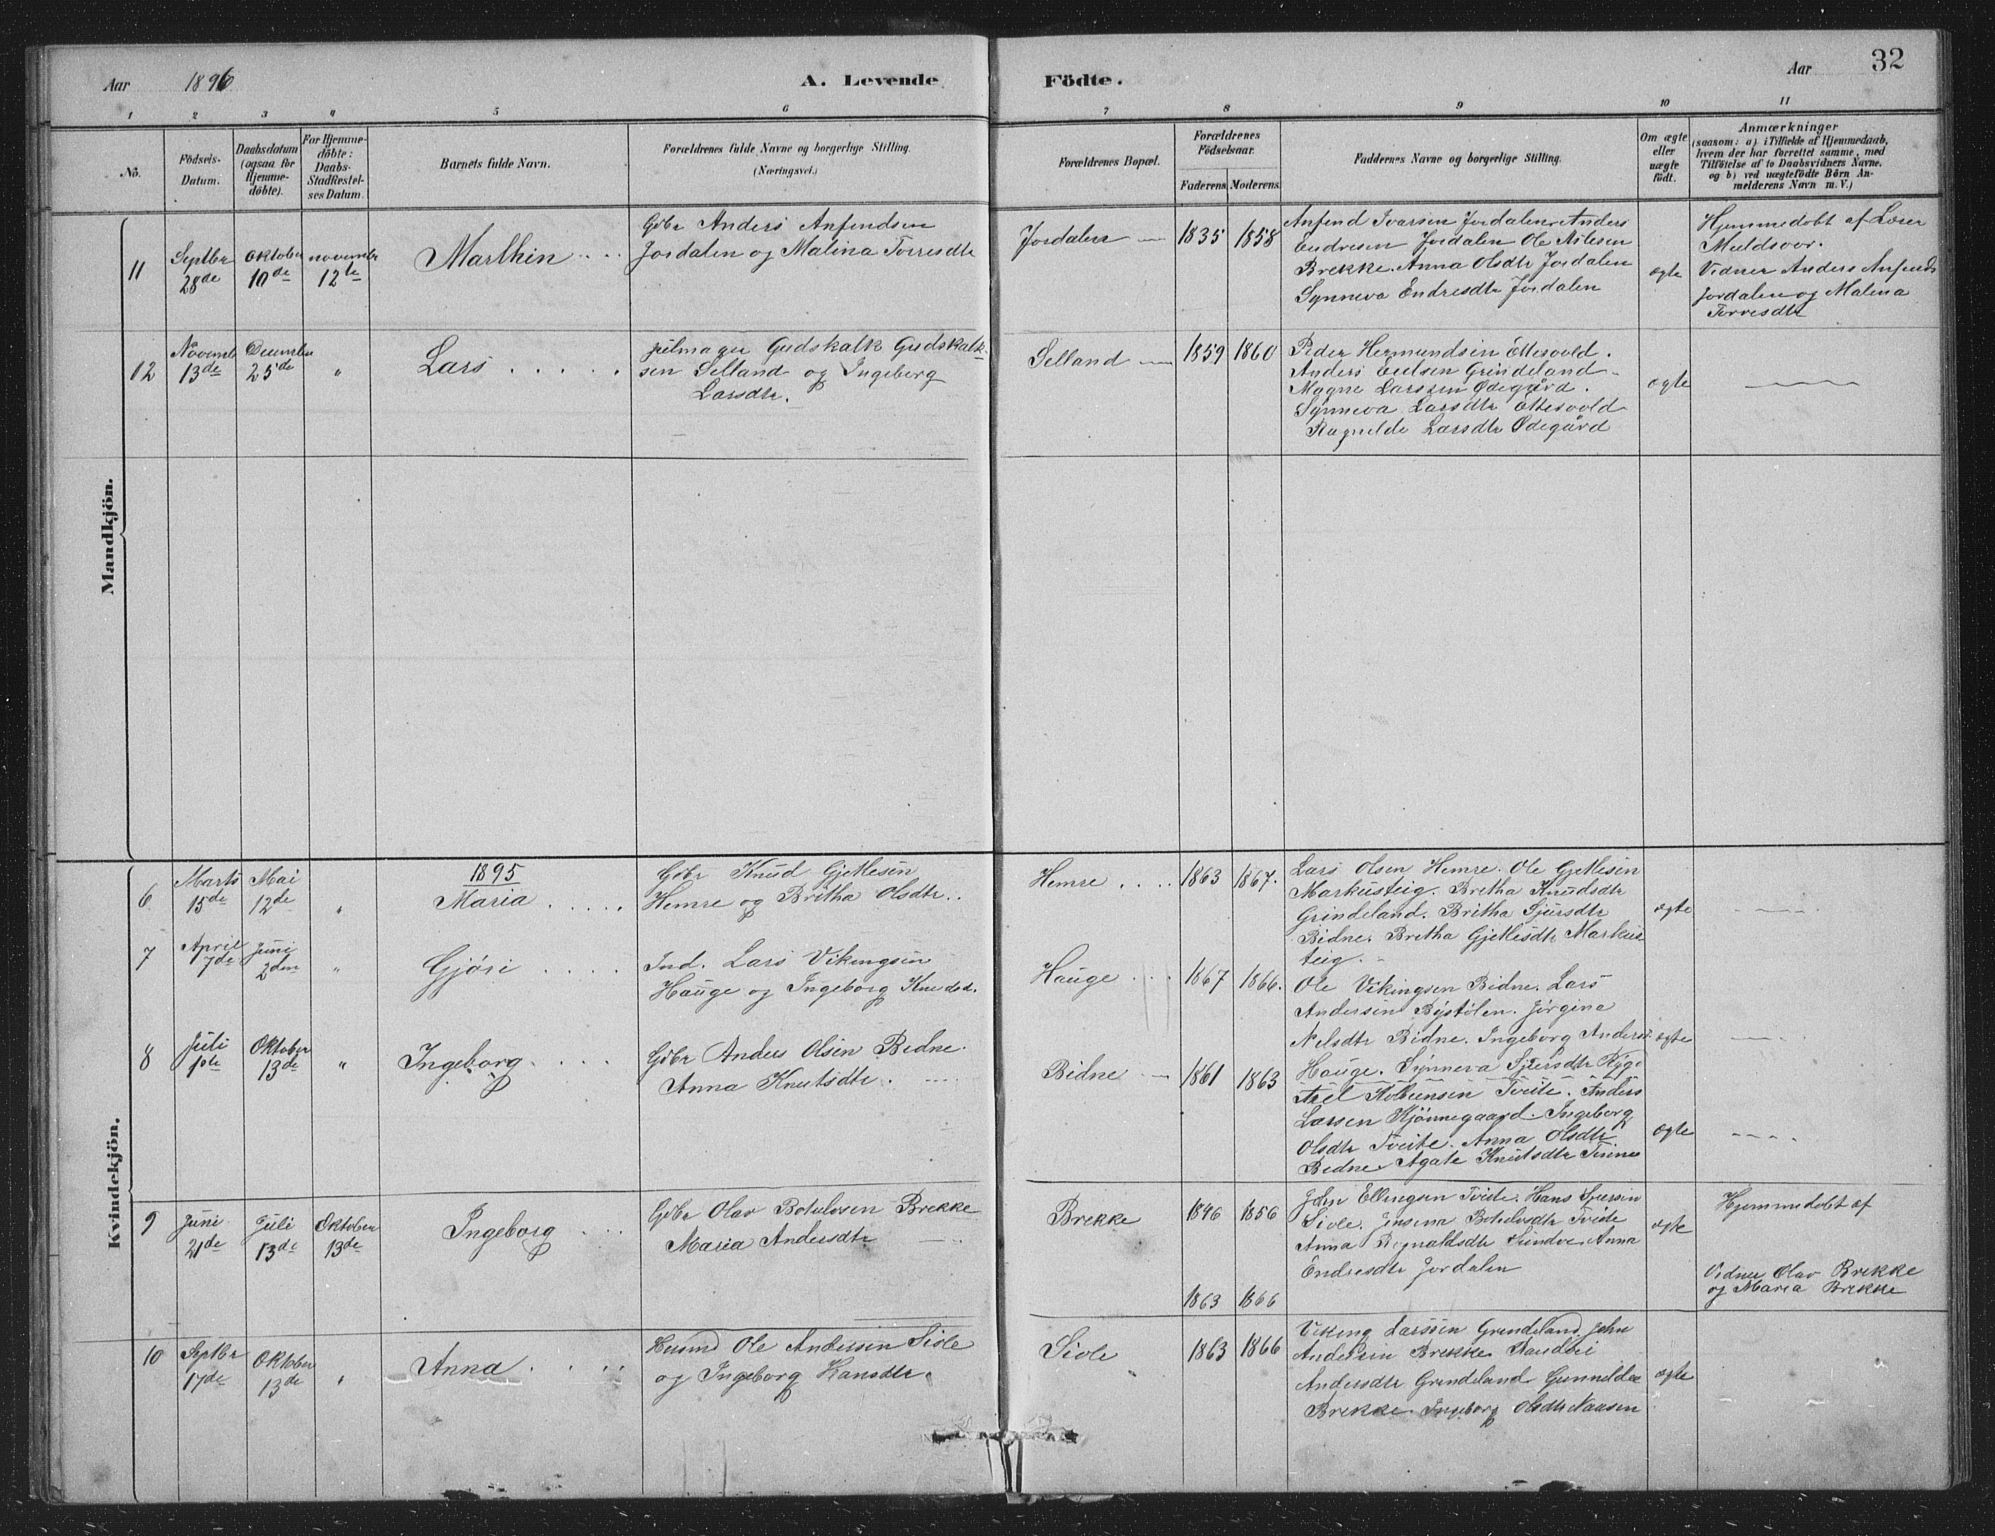 Aar 1896
A. Levende
Födte.
Aar
32
1 2 3 4 5 6 7 8 9 10 11
No.
Födsels-
Datum.
Daabsdatum
(ogsaa for
Hjemme-
döbte).
For Hjemme-
döbte:
Daabs-
Stadfæstel-
ses Datum.
Barnets fulde Navn.
Forældrenes fulde Navne og borgerlige Stilling.
(Næringsvei.)
Forældrenes Bopæl.
Forældrenes
Födselsaar.
Faderens.
Moderens.
Faddernes Navne og borgerlige Stilling.
Om ægte
eller
uægte
födt.
Anmærkninger
(saasom: a) i Tilfælde af Hjemmedaab,
hvem der har forrettet samme, med
Tilföielse af to Daabsvidners Navne.
og b) ved uægtefödte Börn An-
melderens Navn m. V.)
Mandkjön.
11
Septbr
28de
Oktober
10de
november
12te
Marthin
Gdbr Anders Anfindsen
Jordalen og Malina Torresdtr
Jordalen
1835
1858
Anfind Ivarsen Jordalen Anders
Endresen Jordalen Ole Nilsen
Brekke. Anna Olsdtr Jordalen
Synneva Endresdtr Jordalen
ægte
Hjemmedobt af Lærer
Muldsvor.
Vidner Anders Anfinds
Jordalen og Malina
Torresdtr
12
Novemb
13de
December
25de
"
Lars
Gudskalk Gudskalk-
sen Selland og Ingeborg
Larsdtr.
Selland
1859
1860
Peder Hermundsen Ettesvold.
Anders Eielsen Grindeland
Magne Larssen Ødegård.
Synneva Larsdtr Ettesvold
Ragnilde Larsdtr Ødegård
ægte
Kvindekjön.
1895
6
Marts
15de
Mai
12de
"
Maria
Gdbr Knud Gjetlesen
Hemre og Britha Olsdtr.
Hemre
1863
1867.
Lars Olsen Hemre. Ole Gjetlesen
Markusteig. Bretha Knudsdtr
Grindeland. Britha Sjursdtr
Bidne. Bretha Gjetlesdtr Markus
teig.
ægte
7
April
7de
Juni
2den
"
Gjøri
Ind. Lars Vikingsen
Hauge og Ingeborg Knudsd.
Hauge
1867
1866.
Ole Vikingsen Bidne. Lars
Andersen Bystølen. Jørgina
Nilsdtr Bidne. Ingeborg Anders
Hauge. Synneva Sjursdtr
ægte
8
Juli
1ste
Oktober
13de
"
Ingeborg
Gdbr Anders Olsen Bidne.
Anna Knutsdtr.
Bidne
1861
1863
Axel Kolbensen Tveite. Anders
Larsen Hjønnegaard. Ingeborg
Olsdtr Tveite. Anna Olsdtr
Bidne. Agate Knutsdtr
ægte
9
Juni
21de
Juli
13de
Oktober
13de
Ingeborg
Gdbr Olav Botulvsen Brekke
Maria Andersdtr
Brekke
1846
1856
1863
1866
John Ellingsen Tveite. Hans Sjursen
Sivle. Jensina Botulvsdtr Tveite
Anna Rognaldsdtr Sundve. Anna
Endresdtr Jordalen
ægte
Hjemmedobt af
Vidner Olav Brekke
og Maria Brekke
10
Septbr
17de
Oktober
13de
"
Anna
Husmd Ole Andersen Sivle
og Ingeborg Hansdtr.
Sivle
1863
1866
Viking Larssen Grindeland, John
Andersen Brekke
Andersdtr Grindeland Gunnelde
Brekke. Ingeborg Olsdtr Naasen
ægte